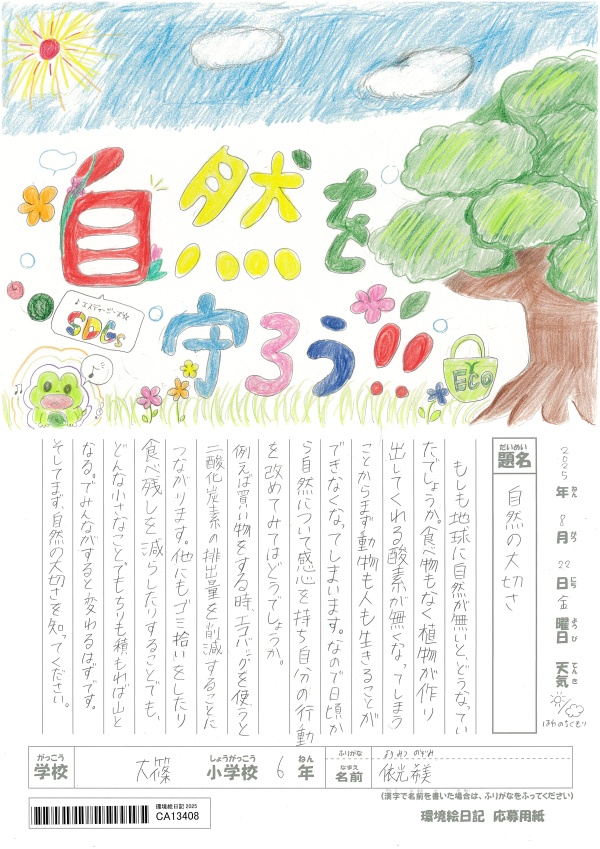 自然を
守ろう!!
♪エスディージーズ☆
SDGs
ECO
2025年8月22日金曜日 天気
ねん がつ にち ようび てんき
はれのちくもり
だいめい
題名
自然の大切さ
もしも地球に自然が無いと、どうなってい
たでしょうか。食べ物もなく植物が作り
出してくれる酸素が無くなってしまう
ことからまず動物も人も生きることが
できなくなってしまいます。なので日頃か
ら自然について感心を持ち自分の行動
を改めてみてはどうでしょうか。
例えば買い物をする時、エコバッグを使うと
二酸化炭素の排出量を削減することに
つながります。他にもゴミ拾いをしたり
食べ残しを減らしたりすることでも、
どんな小さなことでもちりも積もれば山と
なる。でみんながすると変わるはずです。
そしてまず、自然の大切さを知ってください。
がっこう しょうがっこう ねん
学校 大篠 小学校 6年
ふりがな よりみつ のぞみ
なまえ
名前 依光 希美
(漢字で名前を書いた場合は、ふりがなをふってください)
環境絵日記 2025
CA13408
環境絵日記 応募用紙